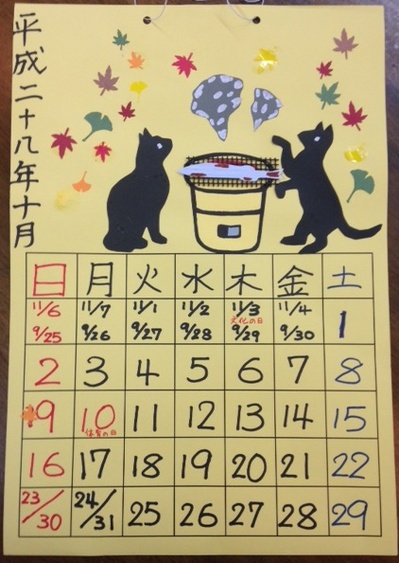 平成二十八年十月
日 月 火 水 木 金 土
11/6 11/7 11/1 11/2 11/3 11/4
文化の日
9/25 9/26 9/27 9/28 9/29 9/30 1
2 3 4 5 6 7 8
9 10 11 12 13 14 15
体育の日
16 17 18 19 20 21 22
23/30 24/31 25 26 27 28 29